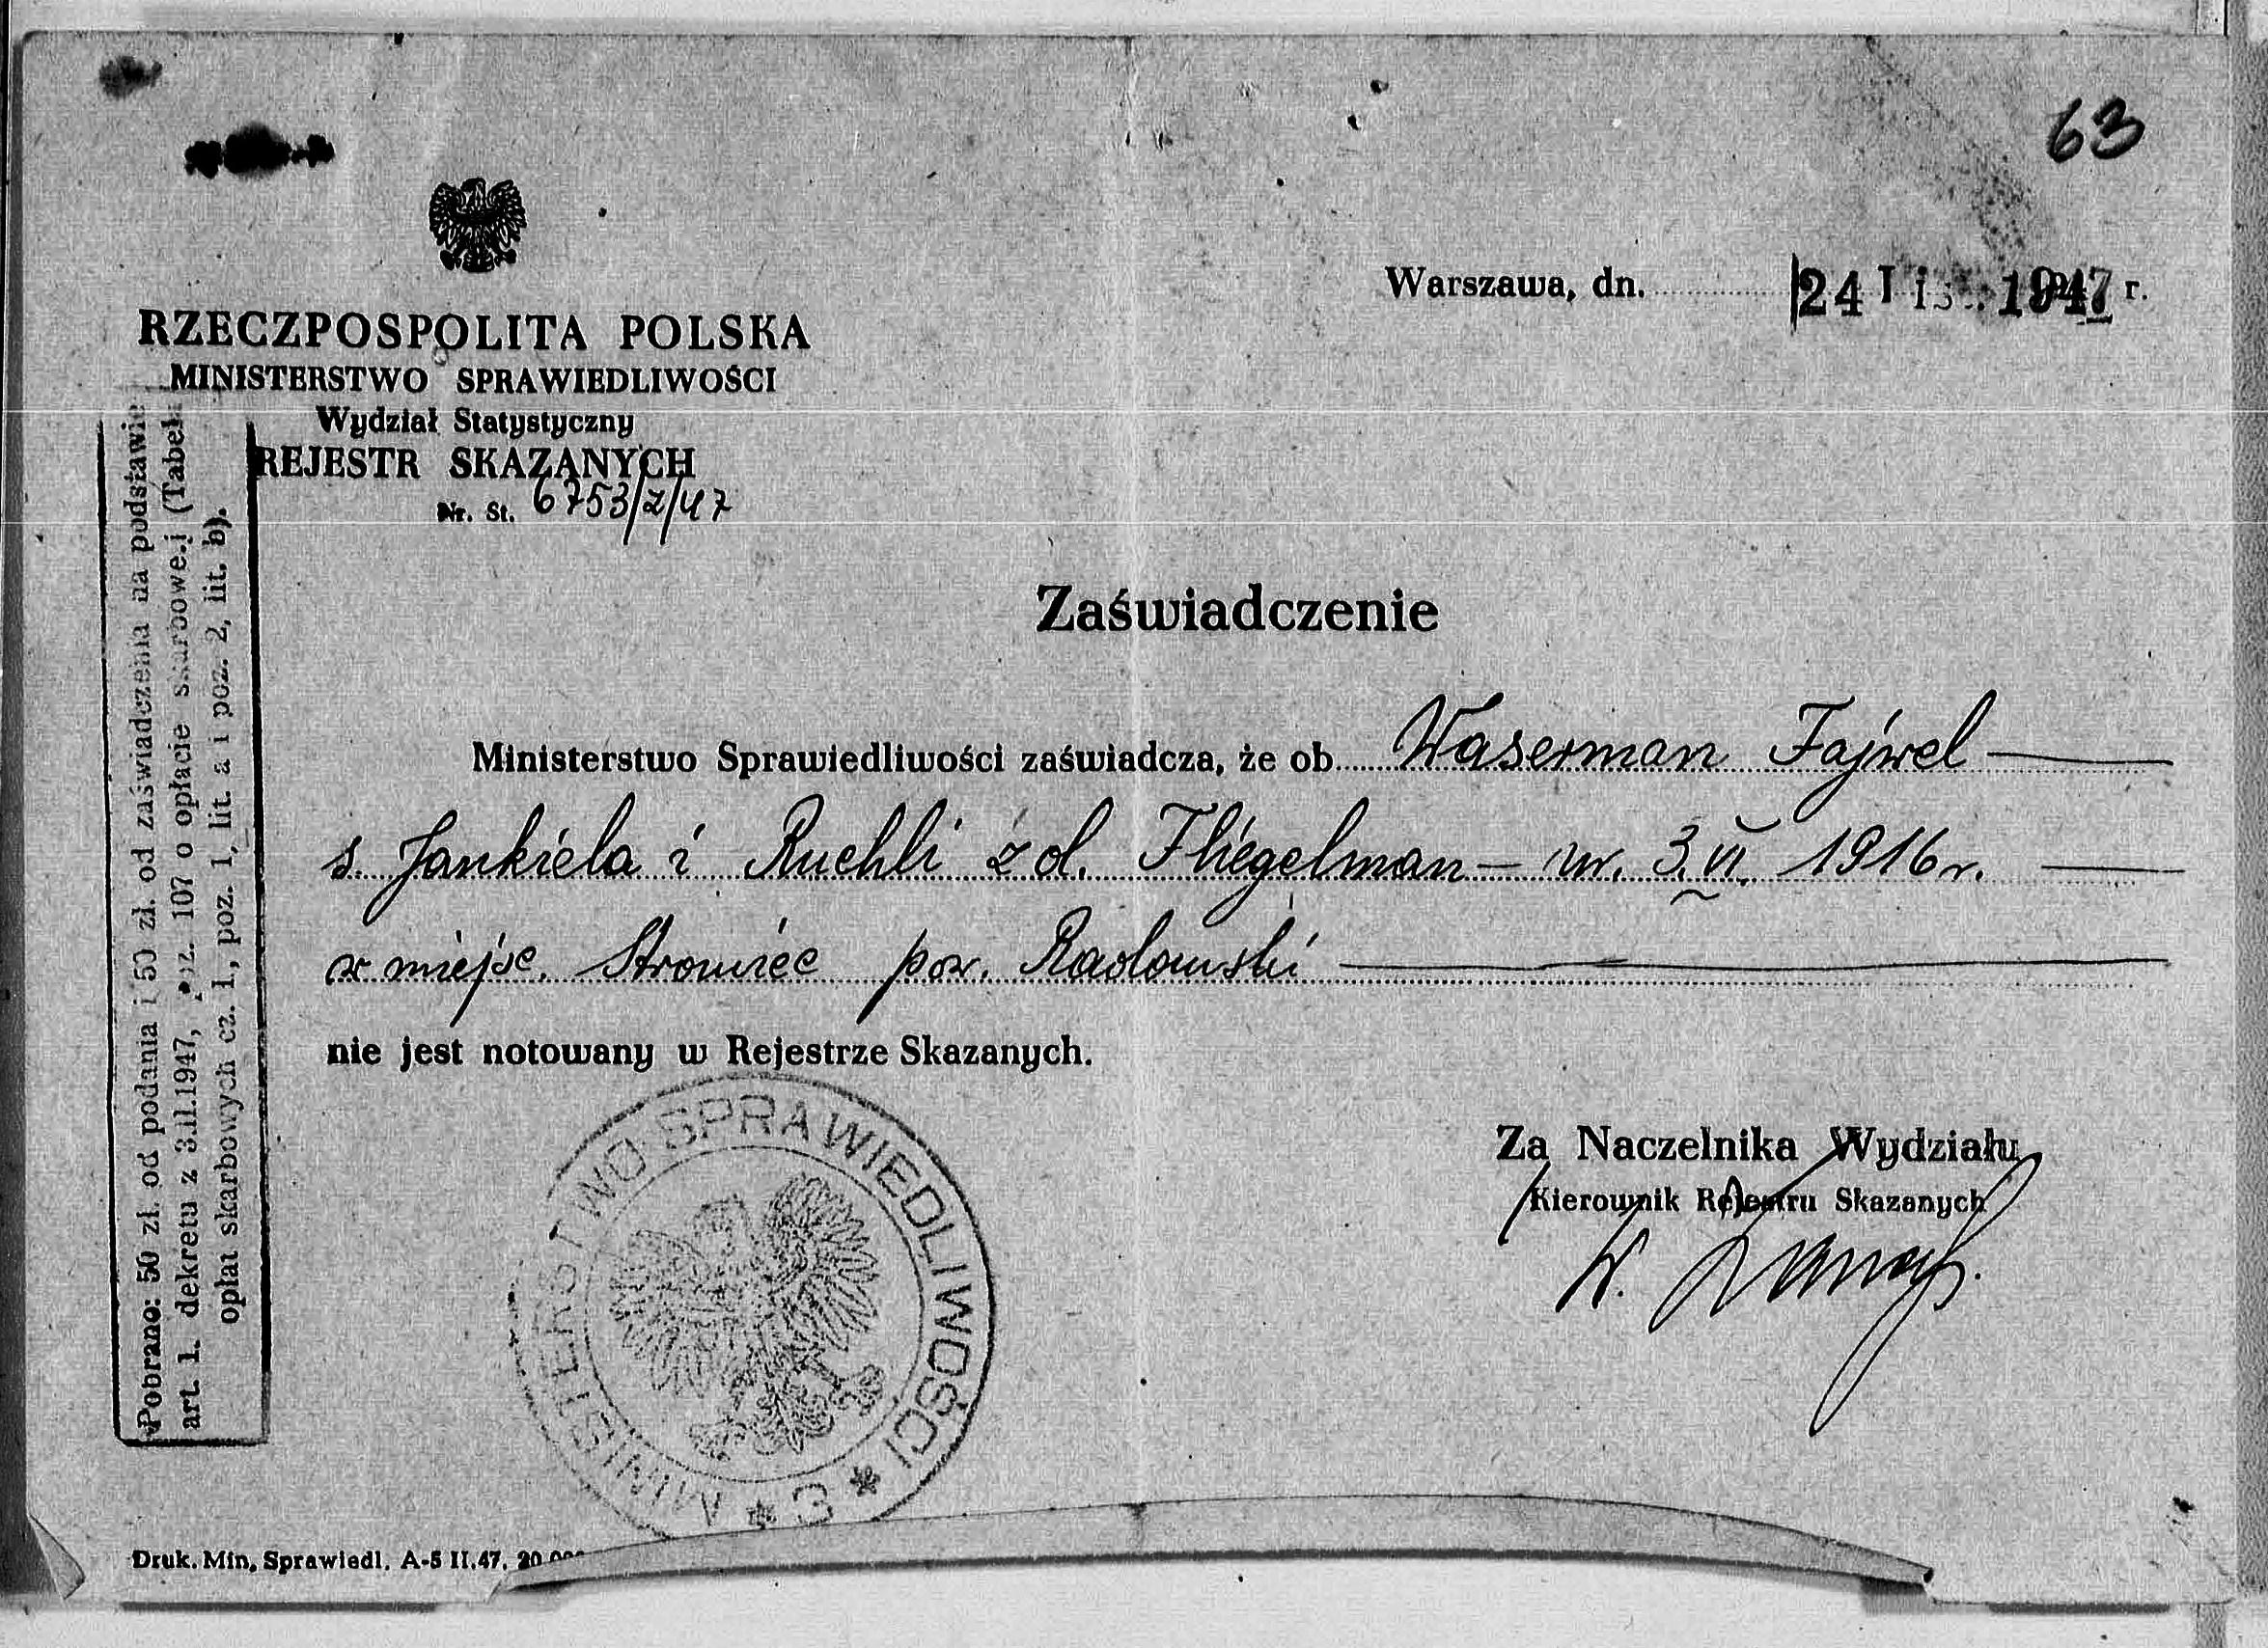 63
Warszawa, dn. 24 Lis. 1947 r.
RZECZPOSPOLITA POLSKA
MINISTERSTWO SPRAWIEDLIWOŚCI
Wydział Statystyczny
REJESTR SKAZANYCH
Nr. St. 6753/Z/47
Zaświadczenie
Ministerstwo Sprawiedliwości zaświadcza, że ob. Waserman Fajwel
s. Jankiela i Ruchli z d. Fliegelman – ur. 3.VI. 1916 r.
w miejsc. Stromiec pow. Radomski
nie jest notowany w Rejestrze Skazanych.
Za Naczelnika Wydziału
Kierownik Rejestru Skazanych
MINISTERSTWO SPRAWIEDLIWOŚCI * 3 *
Pobrano: 50 zł. od podania i 50 zł. od zaświadczenia na podstawie
art. 1. dekretu z 3.II.1947, poz. 107 o opłacie skarbowej (Tabela
opłat skarbowych cz. I., poz. 1, lit. a i poz. 2, lit. b).
Druk. Min. Sprawiedl. A-5 II.47. 20